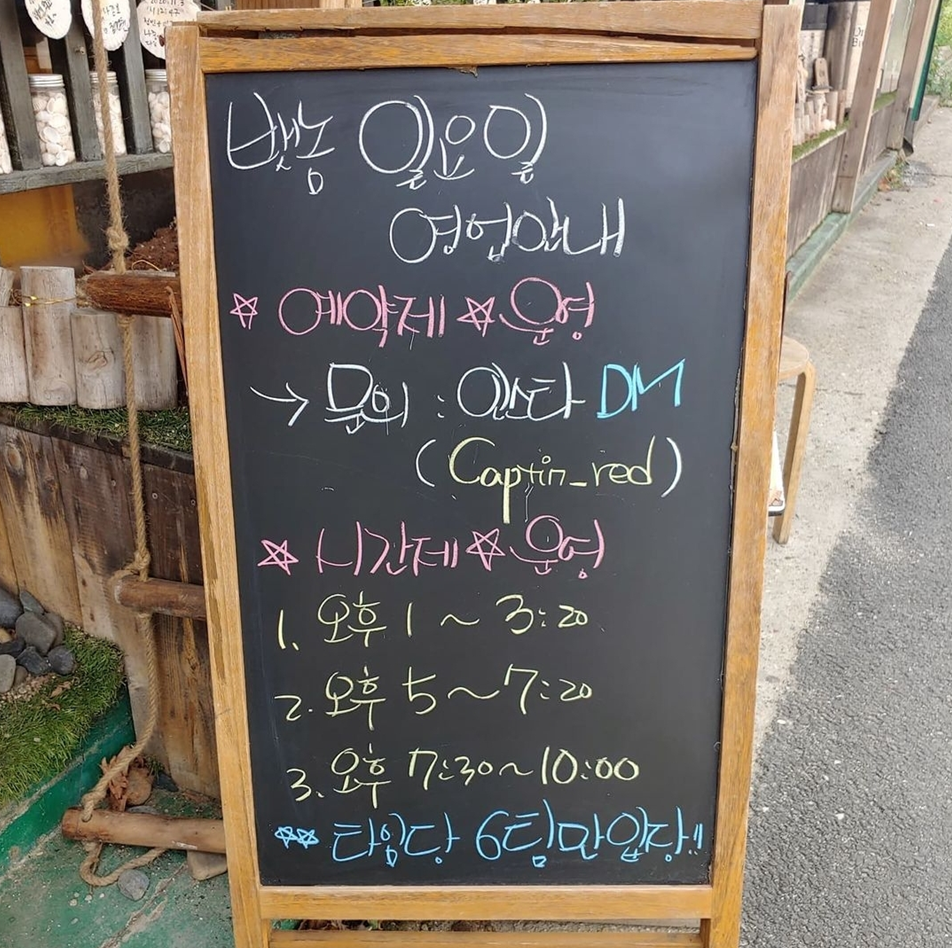 뱃놈 일요일
영업안내
☆ 예약제 ☆ 운영
→ 문의 : 인스타 DM
(Captin_red)
☆ 시간제 ☆ 운영
1. 오후 1 ~ 3:20
2. 오후 5 ~ 7:20
3. 오후 7:30 ~ 10:00
☆☆ 타임당 6팀만 입장!!